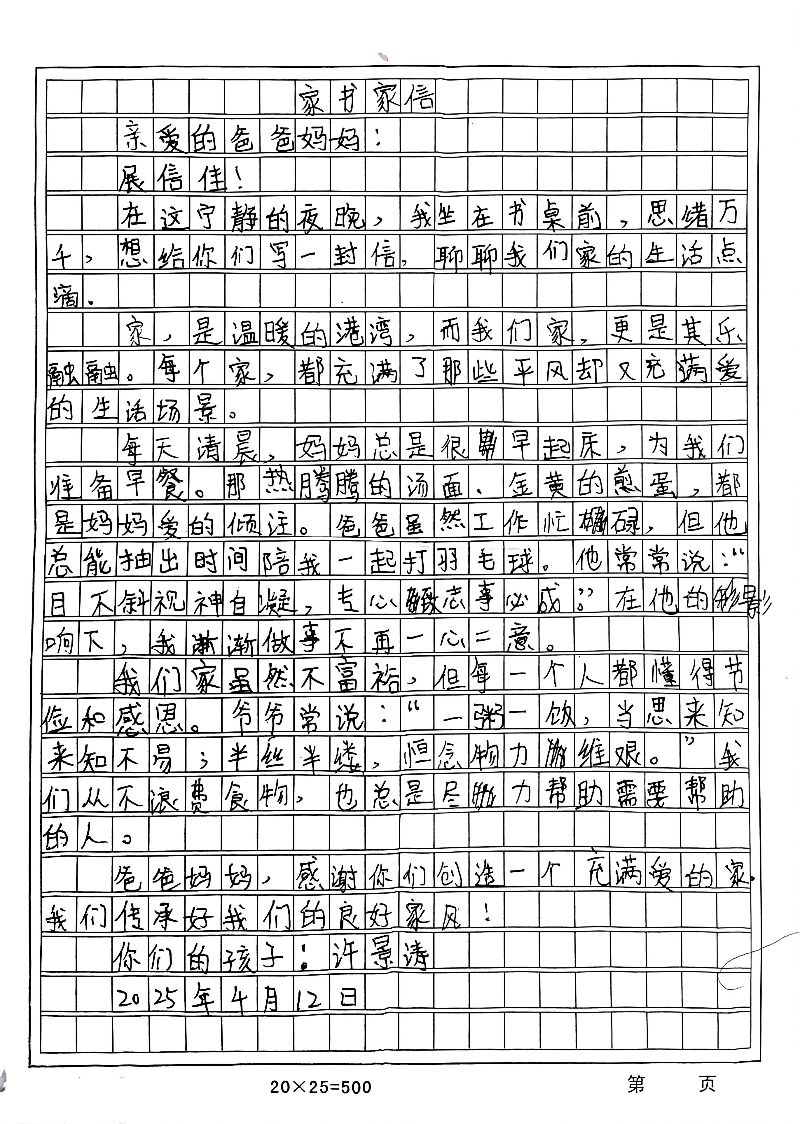 家书家信
亲爱的爸爸妈妈：
展信佳！
在这宁静的夜晚，我坐在书桌前，思绪万
千，想给你们写一封信，聊聊我们家的生活点
滴.
家，是温暖的港湾，而我们家，更是其乐
融融。每个家，都充满了那些平风却又充满爱
的生活场景。
每天清晨，妈妈总是很早起床，为我们
准备早餐。那热腾腾的汤面、金黄的煎蛋，都
是妈妈爱的倾注。爸爸虽然工作忙碌，但他
总能抽出时间陪我一起打羽毛球。他常常说：“
目不斜视神自凝，专心致志事必成。”在他的影
响下，我渐渐做事不再一心二意。
我们家虽然不富裕，但每一个人都懂得节
俭和感恩。爷爷常说：“一粥一饭，当思来知
来知不易；半丝半缕，恒念物力维艰。”我
们从不浪费食物，也总是尽力帮助需要帮助
的人。
爸爸妈妈，感谢你们创造一个充满爱的家.
我们传承好我们的良好家风！
你们的孩子：许景涛
2025年4月12日
20×25=500 第 页